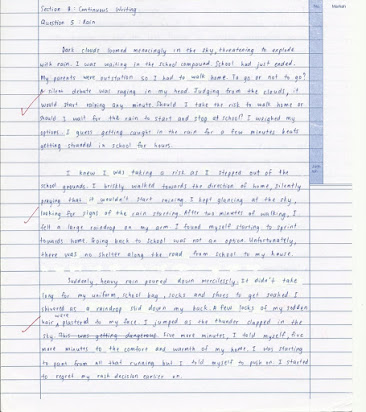 Section B : Continuous Writing
Question 5 : Rain
No.
Markah
Dark clouds loomed menacingly in the sky, threatening to explode
with rain. I was waiting in the school compound. School had just ended.
My parents were outstation so I had to walk home. To go or not to go?
A silent debate was raging in my head. Judging from the clouds, it
would start raining any minute. Should I take the risk to walk home or
should I wait for the rain to start and stop at school? I weighed my
options. I guess getting caught in the rain for a few minutes beats
getting stranded in school for hours.
I knew I was taking a risk as I stepped out of the
school grounds. I briskly walked towards the direction of home, silently
praying that it wouldn't start raining. I kept glancing at the sky,
looking for signs of the rain starting. After two minutes of walking, I
felt a large raindrop on my arm. I found myself starting to sprint
towards home. Going back to school was not an option. Unfortunately,
there was no shelter along the road from school to my house.
Suddenly, heavy rain poured down mercilessly. It didn't take
long for my uniform, school bag, socks and shoes to get soaked. I
shivered as a raindrop slid down my back. A few locks of my sodden
were
hair plastered to my face. I jumped as the thunder clapped in the
sky. This was getting dangerous. Five more minutes, I told myself, five
more minutes to the comfort and warmth of my home. I was starting
to pant from all that running but I told myself to push on. I started
to regret my rash decision earlier on.